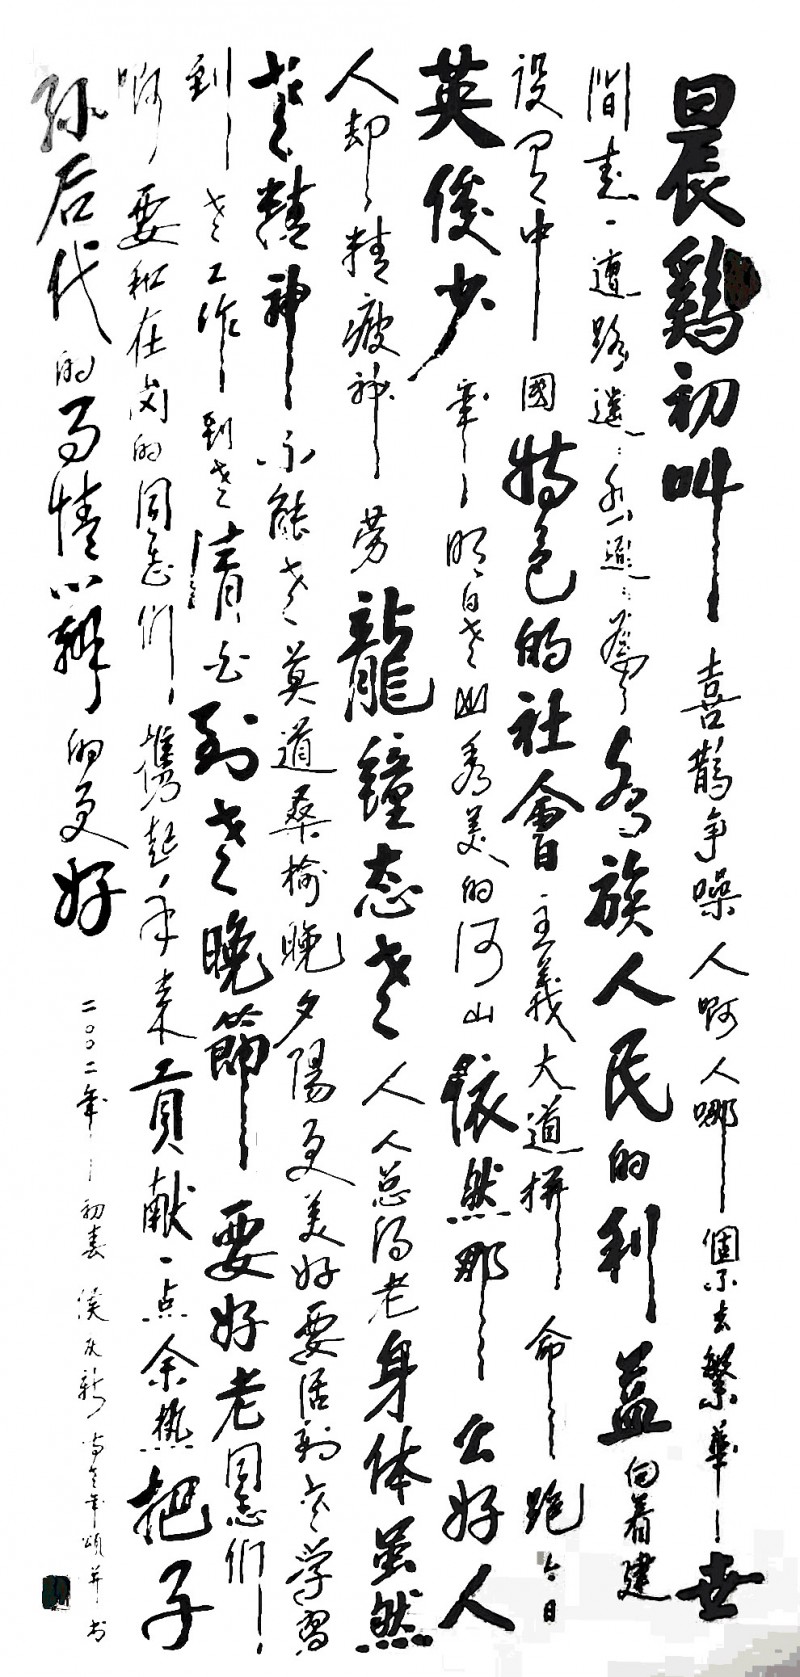 晨鸡初叫喜鹊争噪人啊人哪個不去繁華世
間走一遭路遥遥水迢迢为了各族人民的利益向着建
设有中國特色的社會主義大道拼命跑今日
英俊少年明日老山秀美的河山依然那么好人
人却精疲神劳龍鐘态老人人总得老身体虽然
老精神不能老莫道桑榆晚夕陽更美好要活到老学習
到老工作到老清白到老晚節要好老同志们
啊要和在岗的同志们携起手来貢献一点余热把子
孙后代的事情办的更好
二〇〇二年初春
老年頌并书